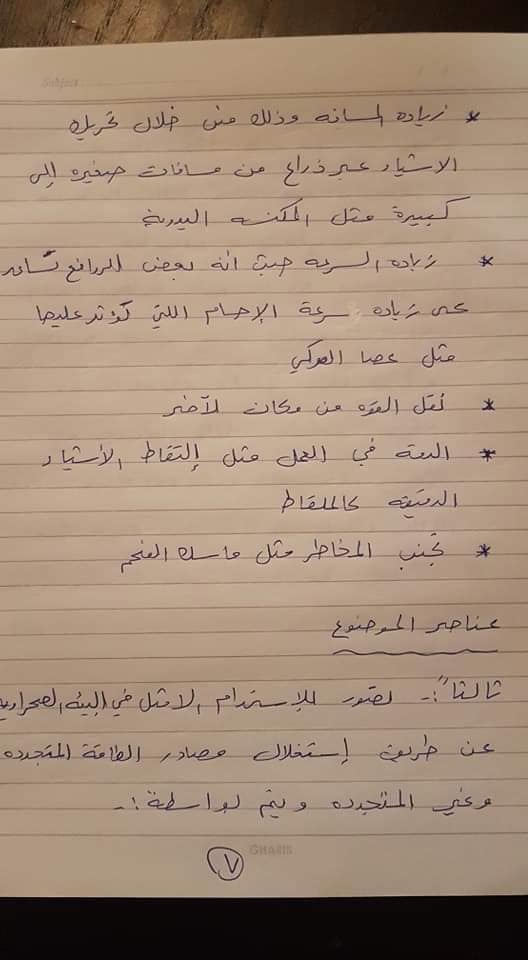 Subject
* زياده المسافه وذلك من خلال تحريك
الاشياء عبر ذراع من مسافات صغيره إلى
كبيرة مثل المكنسه اليدوية
* زياده السرعه حيث انه بعض الروافع تساعد
على زياده سرعة الإجسام اللتي تؤثر عليها
مثل عصا الهوكي
* نقل القوه من مكان للآخر
* الدقه في العمل مثل إلتقاط الأشياء
الدقيقه كالملقاط
* تجنب المخاطر مثل ماسك الفحم
عناصر الموضوع
ثالثاً :- تصور للإستخدام الامثل في البيئه الصحراويه
عن طريق إستغلال مصادر الطاقة المتجدده
وغير المتجدده ويتم بواسطة :-
٧
GHAZIS